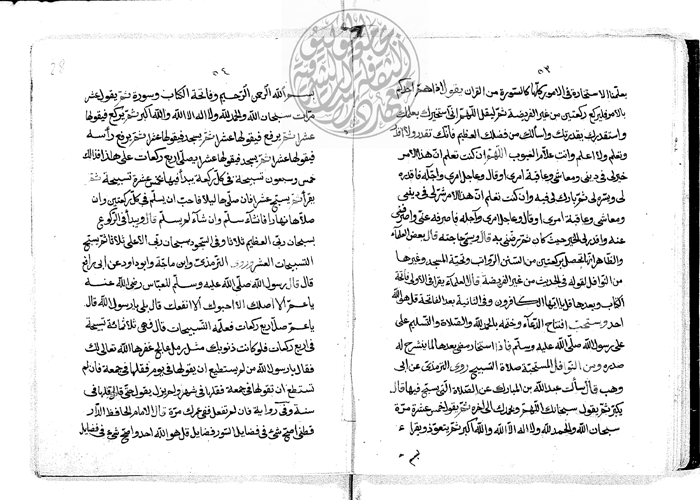 ٥٣
يعلمنا الاستخارة في الامور كلها كالسورة من القران يقول اذا هم احدكم
بالامر فليركع ركعتين من غير الفريضة ثم ليقل اللهم اني استخيرك بعلمك
واستقدرك بقدرتك واسألك من فضلك العظيم فانك تقدر ولا اقدر
وتعلم ولا اعلم وانت علام الغيوب اللهم ان كنت تعلم ان هذا الامر
خير لي في ديني ومعاشي وعاقبة امري او قال وعاجل امري واجله فاقدره
لي ويسره لي ثم بارك لي فيه وان كنت تعلم ان هذا الامر شر لي في ديني
ومعاشي وعاقبة امري او قال وعاجل امري واجله فاصرفه عني واصرفني
عنه واقدر لي الخير حيث كان ثم رضني به قال ويسمي حاجته قال بعض العلماء
والظاهر انها تحصل بركعتين من السنن الرواتب وتحية المسجد وغيرها
من النوافل لقوله في الحديث من غير الفريضة قال العلماء يقرأ في الاولى فاتحة
الكتاب وبعدها قل يا ايها الكافرون وفي الثانية بعد الفاتحة قل هو الله
احد ويستحب افتتاح الدعاء وختمه بالحمد لله والصلاة والتسليم على
على رسول الله صلى الله عليه وسلم فاذا استخار مضى بعدها لما ينشرح له
صدره ومن النوافل المستحبة صلاة التسبيح روى الترمذي عن ابي
وهب قال سألت عبد الله بن المبارك عن الصلاة التي يسبح فيها قال
يكبر ثم يقول سبحانك اللهم وبحمدك الى اخره ثم يقول خمس عشرة مرة
سبحان الله والحمد لله ولا اله الا الله والله اكبر ثم يتعوذ ويقرأ
بسم
٥٤
بسم الله الرحمن الرحيم وفاتحة الكتاب وسورة ثم يقول عشر
مرات سبحان الله والحمد لله ولا اله الا الله والله اكبر ثم يركع فيقولها
عشرا ثم يرفع فيقولها عشرا ثم يسجد فيقولها عشرا ثم يرفع رأسه
فيقولها عشرا ثم يسجد فيقولها عشرا يصلي اربع ركعات على هذا فذلك
خمس وسبعون تسبيحة في كل ركعة يبدأ فيها بخمس عشرة تسبيحة ثم
يقرأ ثم يسبح عشرا فان صلاها ليلا فاحب ان يسلم في كل ركعتين وان
صلاها نهارا فان شاء سلم وان شاء لم يسلم قال ويبدأ في الركوع
بسبحان ربي العظيم ثلاثا وفي السجود سبحان ربي الاعلى ثلاثا ثم يسبح
التسبيحات العشر وروى الترمذي وابن ماجة وابو داود عن ابي رافع
قال قال رسول الله صلى الله عليه وسلم للعباس رضي الله عنه
يا عم الا اصلك الا احبوك الا انفعك قال بلى يا رسول الله قال
يا عم صل اربع ركعات فعلمه التسبيحات قال فهي ثلاثمائة تسبيحة
في اربع ركعات فلو كانت ذنوبك مثل رمل عالج غفرها الله تعالى لك
فقال يا رسول الله من لم يستطيع ان يقولها في يوم فقلها في جمعة فان لم
تستطع ان تقولها في جمعة فقلها في شهر ولم يزل يقول حتى قال قلها في
سنة وفي رواية فان لم تفعل ففي عمرك مرة قال الامام الحافظ الدار
قطني اصح شئ في فضايل السور فضايل قل هو الله احد واصح شئ في فضايل